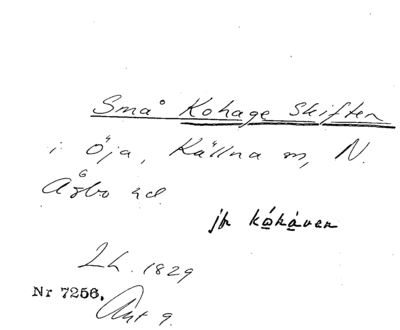 Små Kohage Skiften
i Öja, Källna m, N.
Åsbo hd
jfr kåhåven
Lh. 1829
Nr 7256. Akt 9.